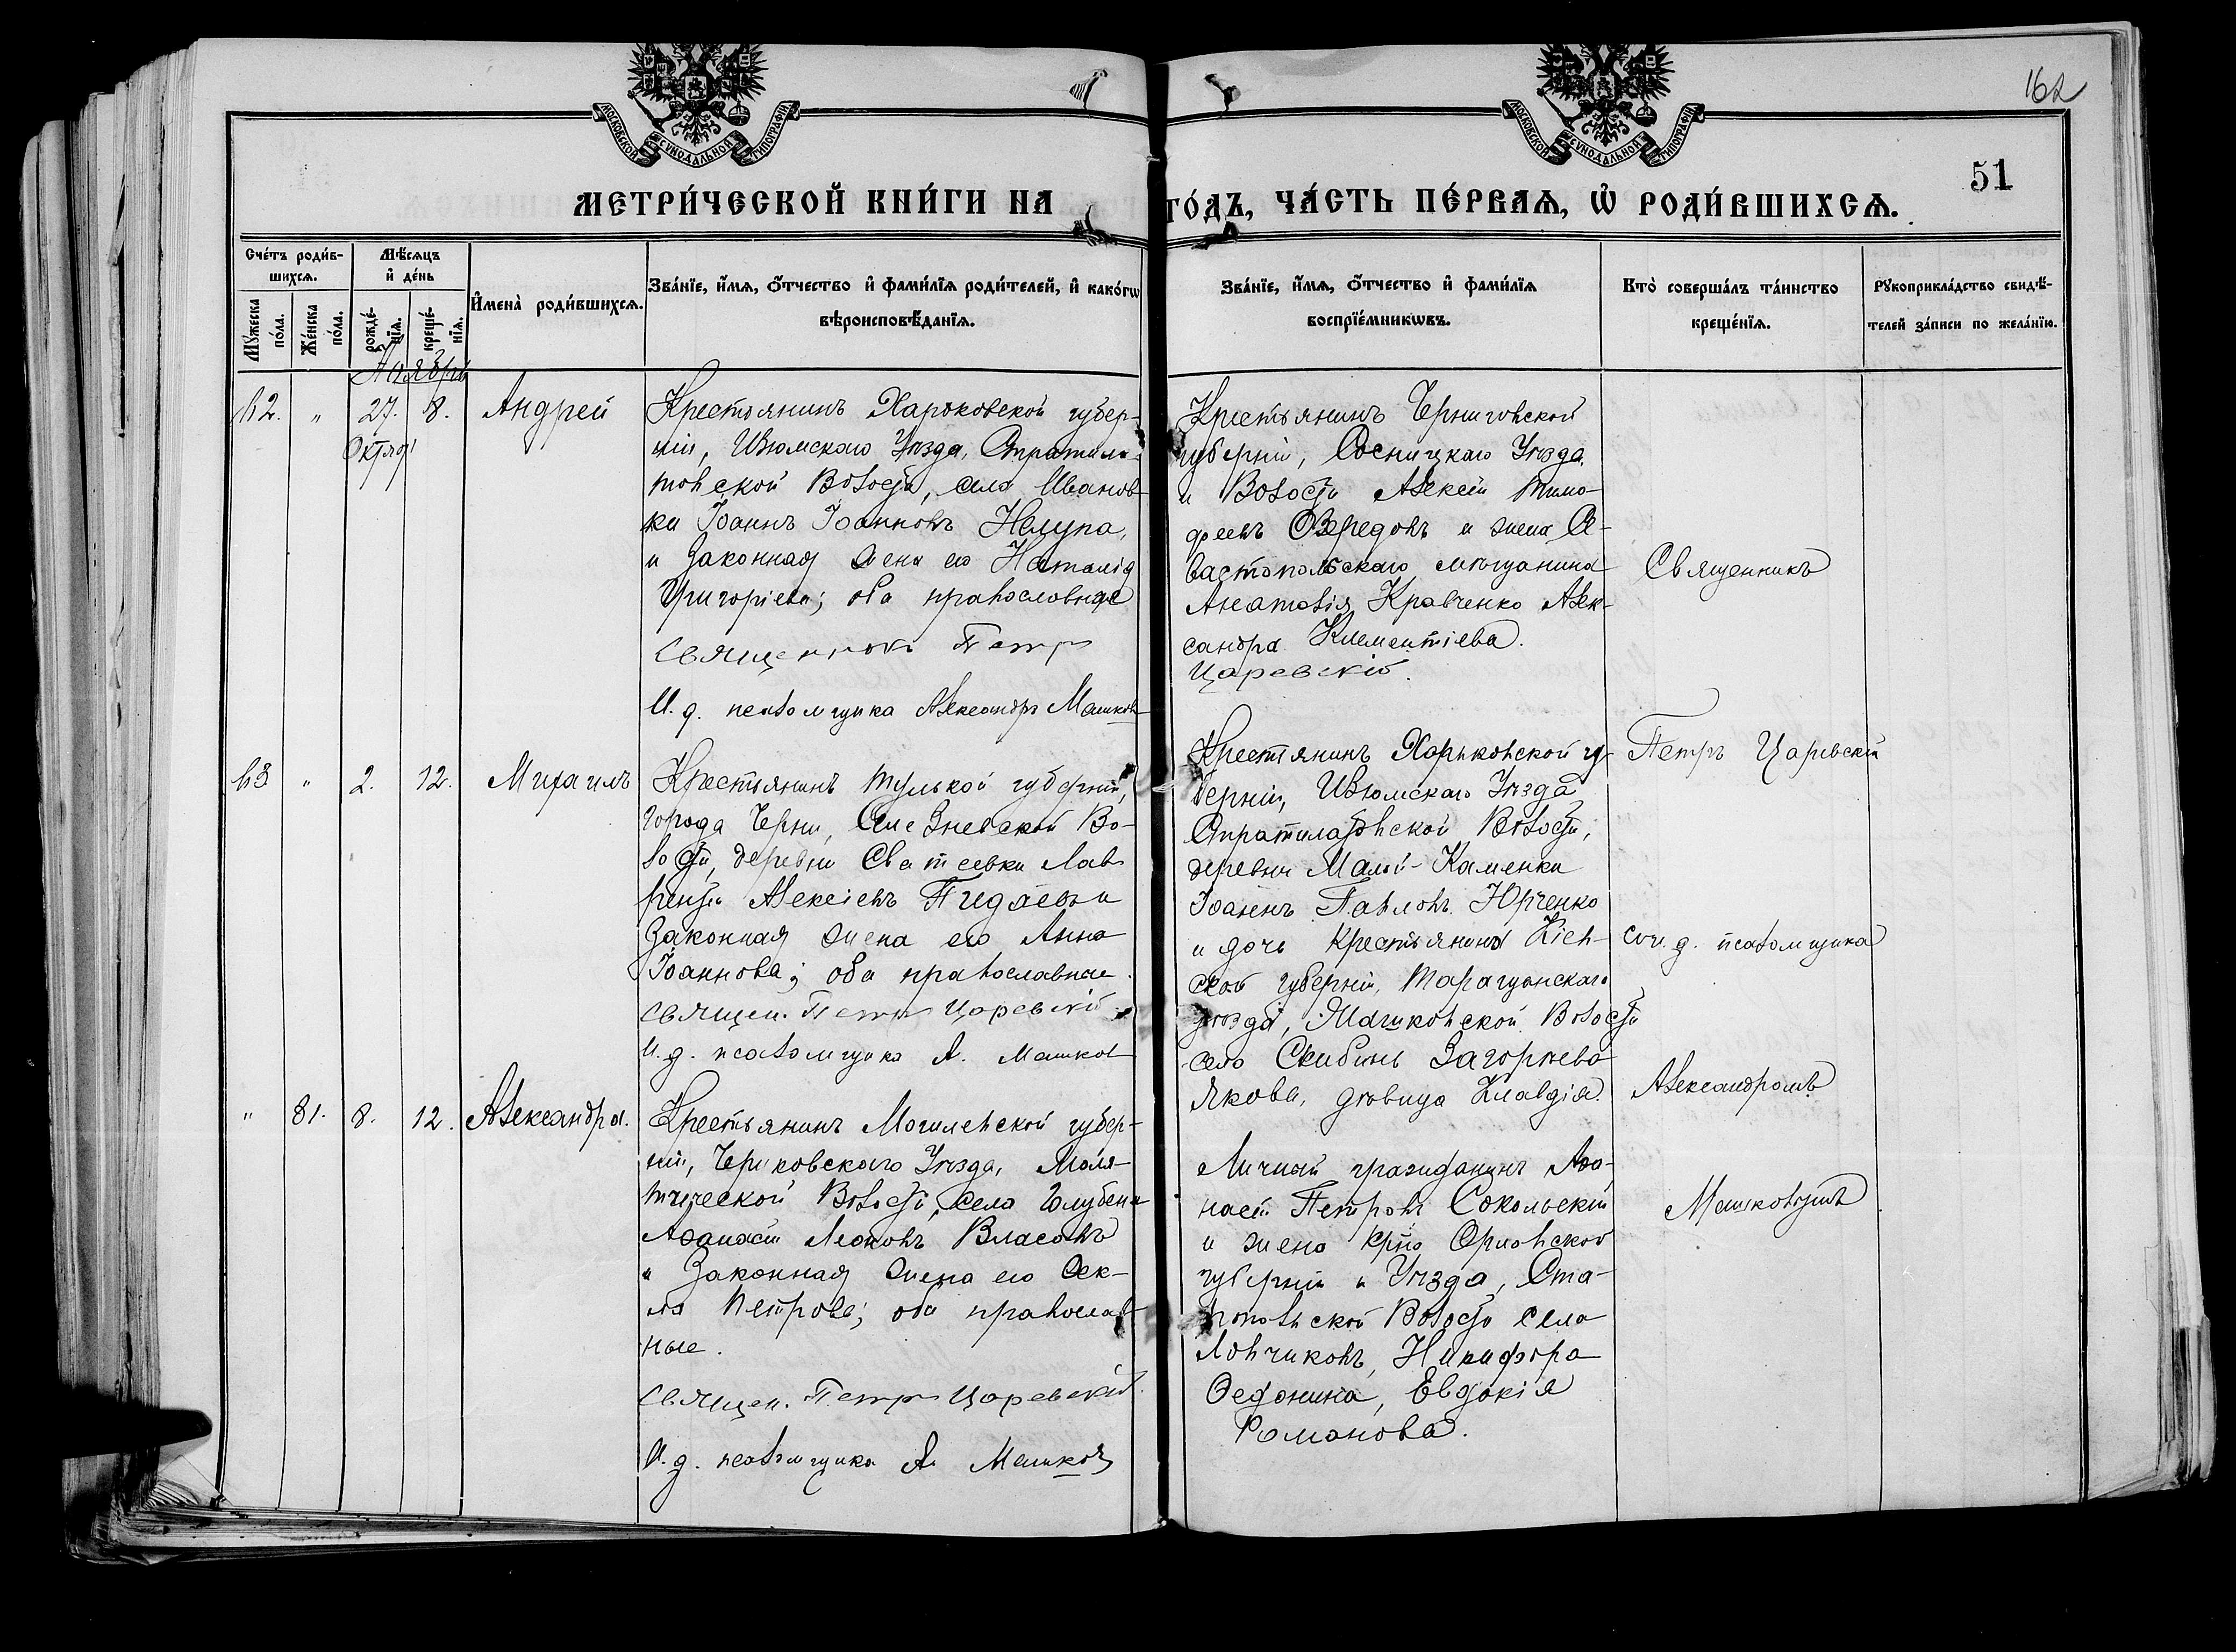 162
51
МОСКОВСКОЙ СУНОДАЛЬНОЙ ТИПОГРАФІИ
МОСКОВСКОЙ СУНОДАЛЬНОЙ ТИПОГРАФІИ
МЕТРИ́ЧЕСКОЙ КНИ́ГИ НА ГО́ДЪ, ЧА́СТЬ ПЕ́РВАѦ, Ѿ РОДИ́ВШИХСѦ.
Сче́тъ роди́в-
шихсѧ.
Мꙋжеска по́ла.
Же́нска по́ла.
Мѣ́сѧцъ
и҆ де́нь
рожде́-нїѧ.
креще́-нїѧ.
И҆мена̀ роди́вшихсѧ.
Зва́нїе, и҆́мѧ, ѻ҆́тчество и҆ фами́лїѧ роди́телей, и҆ како́гѡ
вѣроисповѣ́данїѧ.
Зва́нїе, и҆́мѧ, ѻ҆́тчество и҆ фами́лїѧ
воспрїе́мникѡвъ.
Кто̀ соверша́лъ та́инство
креще́нїѧ.
Рꙋкоприкла́дство свидѣ́-
телей за́писи по жела́нїю.
Ноября
62. " 27. 8. Андрей
Октяб
Крестьянинъ Харьковской губер-
ніи, Изюмскаго Уѣзда, Спратила-
товской Волости, села Иванов-
ки Іоаннъ Іоанновъ
и Законная жена его Наталія
Григоріева; оба православные
Священникъ Петръ
И. д. псаломщика Александръ Машков
Крестьянинъ Черниговской
губерніи, Сосницкаго Уѣзда,
и Волости Алексій Тимо-
феевъ и жена Се-
вастопольскаго мѣщанина
Анатолія Кравченко Алек-
сандра Климентіева.
Царевскій.
Священникъ
63 " 2. 12. Михаилъ
Крестьянинъ Тульской губерніи,
города Черни, Во-
лости, деревни Лав-
рентій Алексіевъ и
Законная жена его Анна
Іоаннова; оба православные.
Священ. Петръ Царевскій
И. д. псаломщика А. Машков
Крестьянинъ Харьковской гу-
берніи, Изюмскаго Уѣзда
Спратилатовской Волости,
деревни Малой-Каменки
Іоаннъ Павловъ Юрченко
и дочь крестьянина Кіев-
ской губерніи, Таращанскаго
уѣзда, Волости
село Скибинъ
Якова, дѣвица Клавдія.
Петръ Царевскій
со и. д. псаломщика
Александромъ
Машковымъ
" 81. 8. 12. Александра.
Крестьянинъ Могилевской губер-
ніи, Чериковскаго Уѣзда, Моля-
тической Волости, села
Аѳанасій Леоновъ Власовъ
и Законная жена его Ѳек-
ла Петрова; оба православ-
ные.
Священ. Петръ Царевскій.
И. д. псаломщика А. Машков
Личный гражданинъ Аѳа-
насій Петровъ Сокольскій
и жена кр-на Орловской
губерніи и Уѣзда,
Волости села
Никифора
Евдокія
Романова.